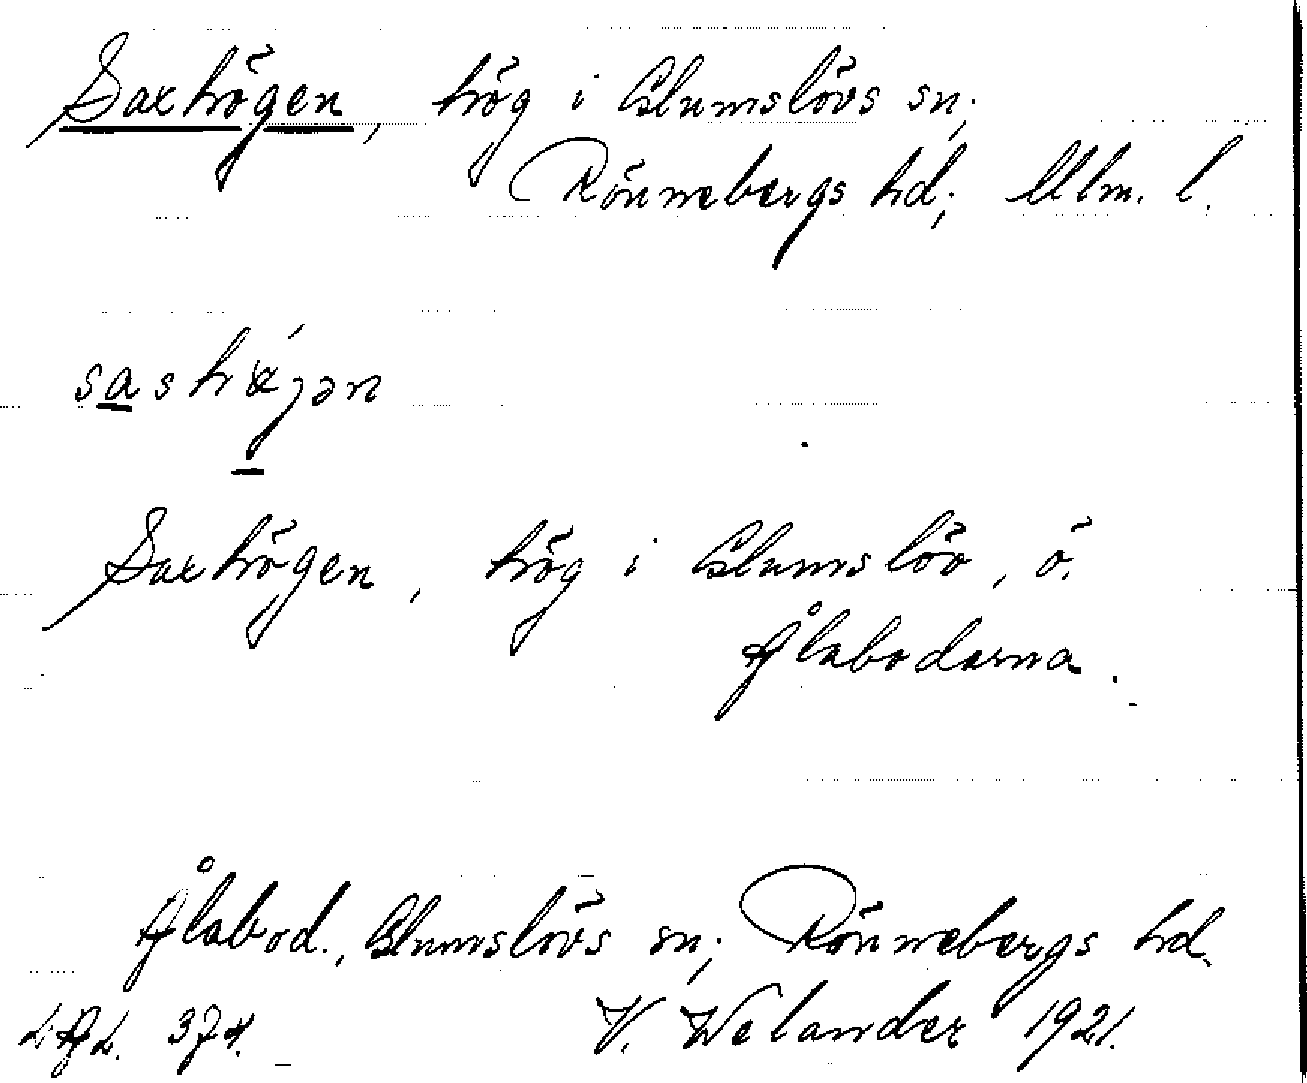 Saxhögen, hög i Glumslövs sn;
Rönnebergs hd; Mlm. l.
sashǿjən
Saxhögen, hög i Glumslöv, ö.
Ålabodarna.
Ålabod., Glumslövs sn; Rönnebergs hd.
LAL. 374. V. Welander 1921.